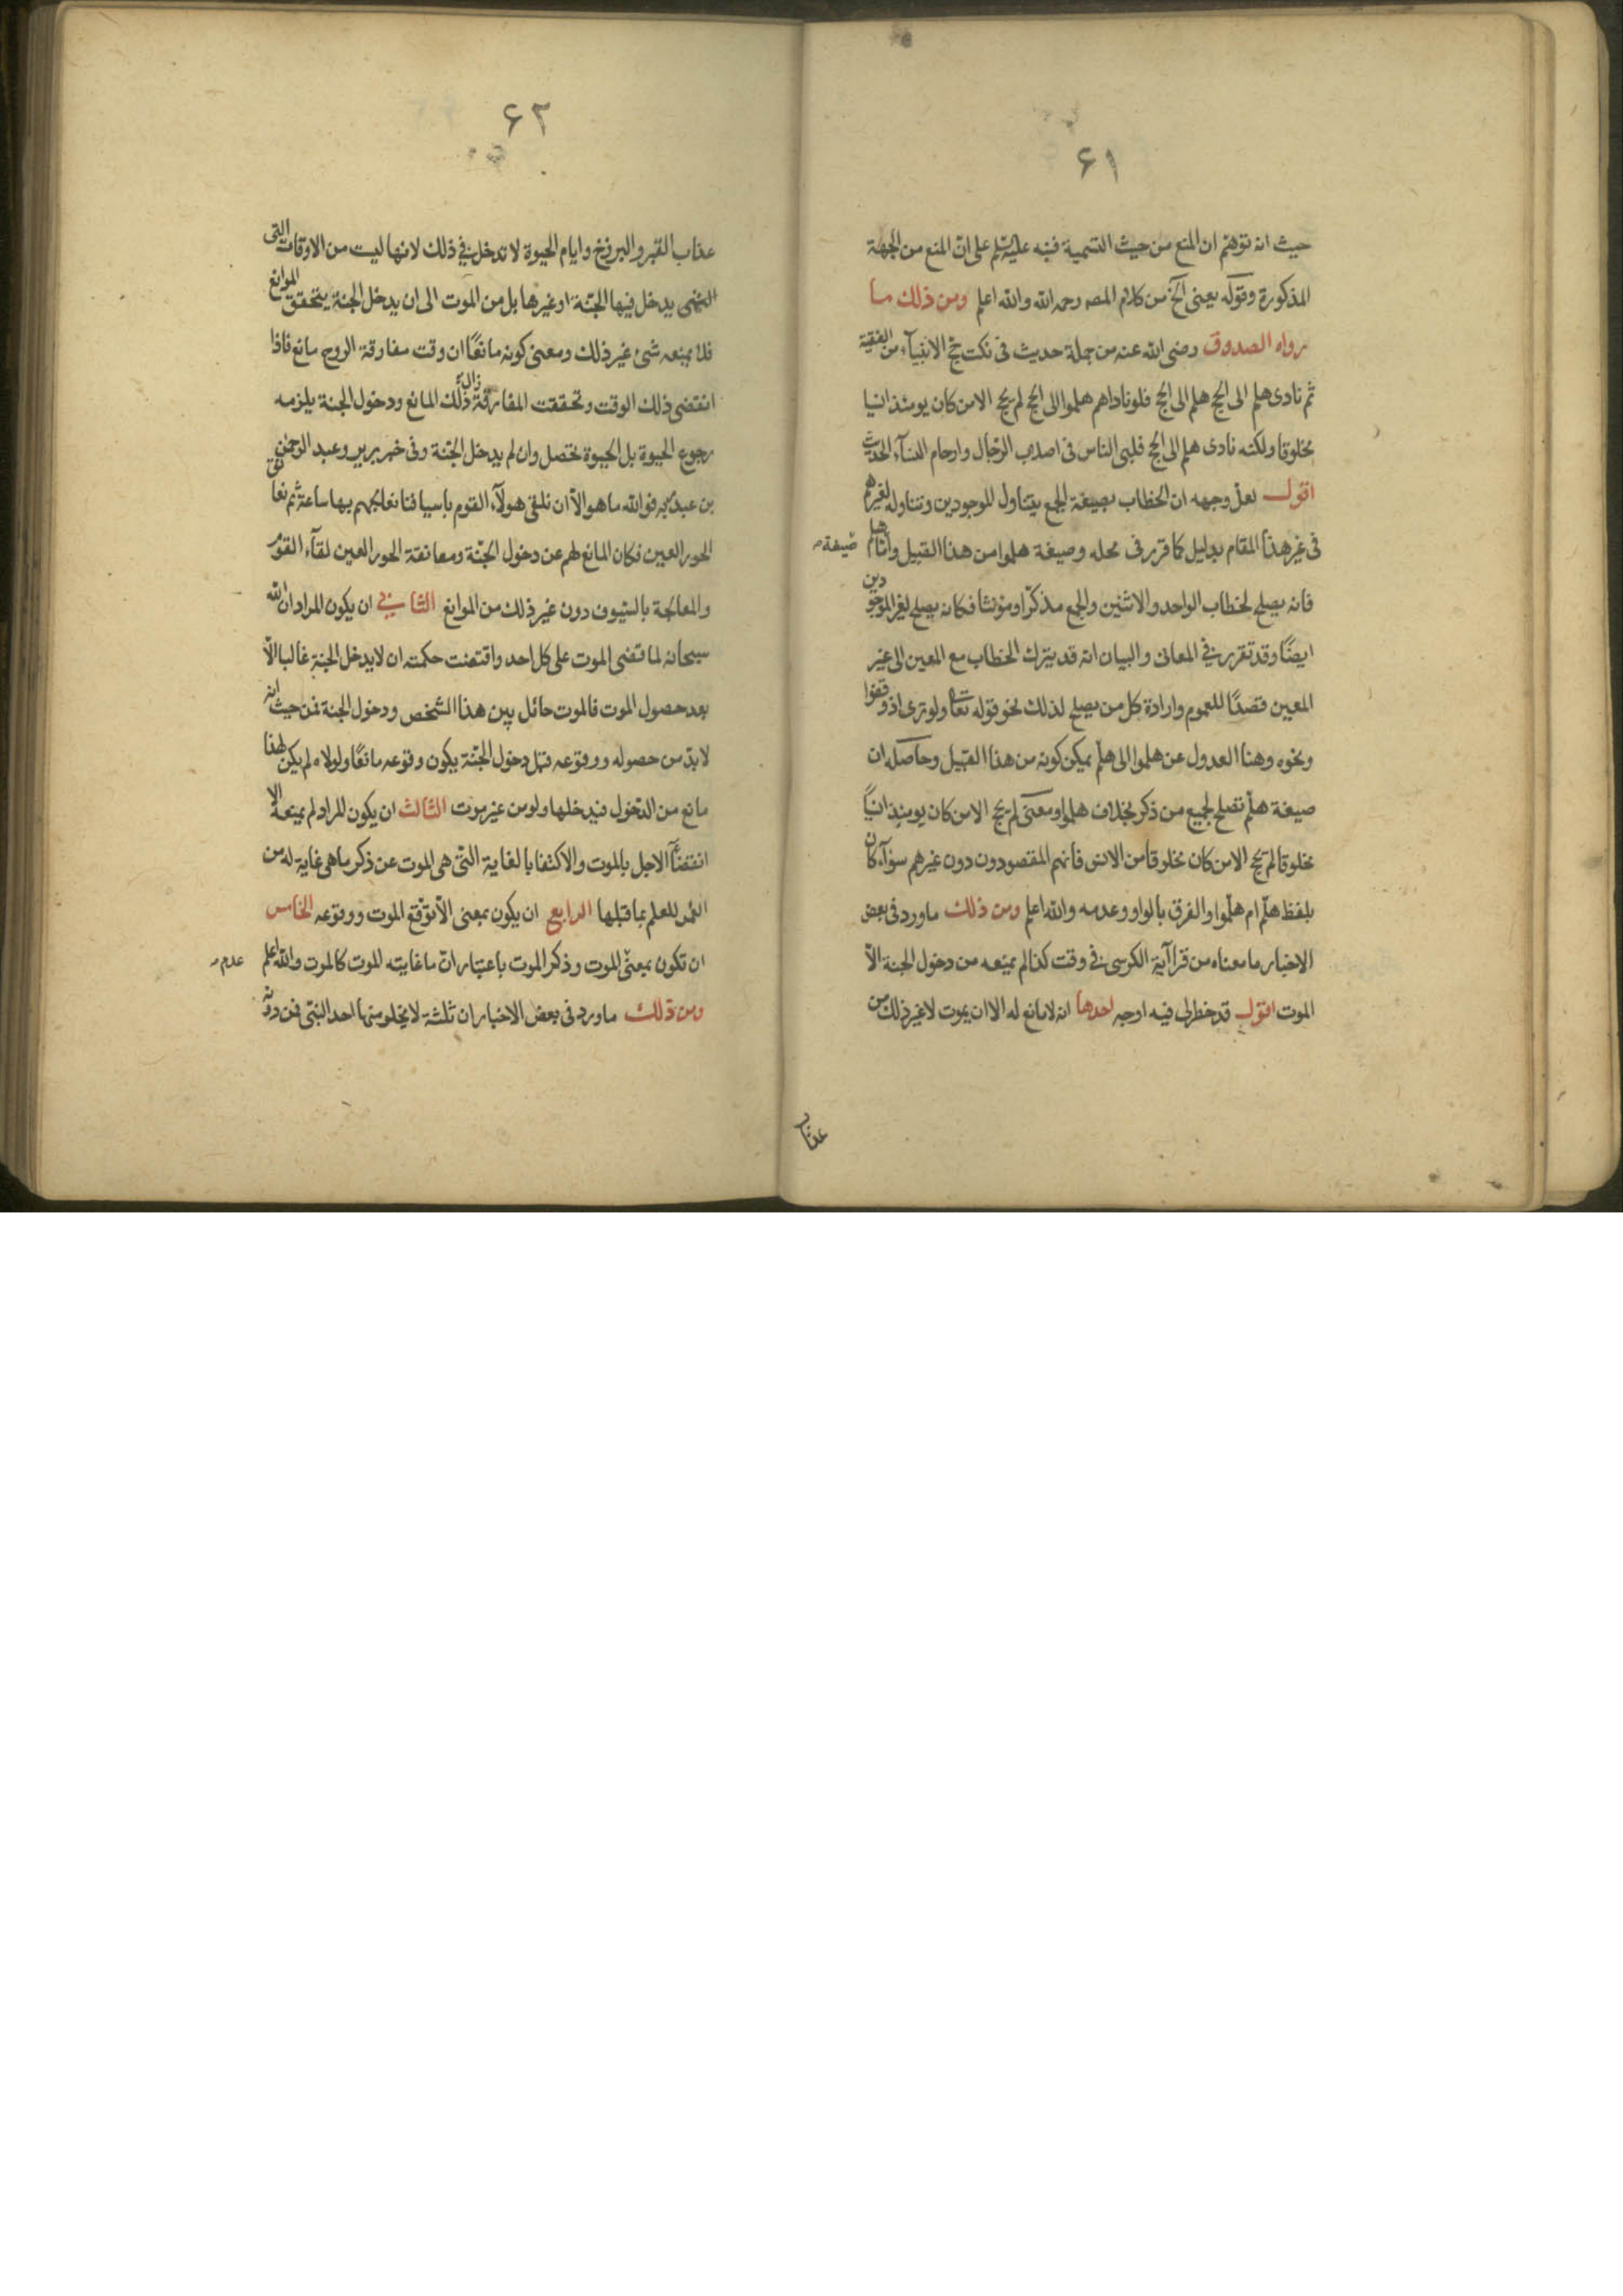 ۶۱
حيث انه توهم ان المنع من حيث التسمية فنبه عليه السلم على ان المنع من الجهة
المذكورة وقوله يعنى الخ من كلام المصه رحمه الله والله اعلم ومن ذلك ما
رواه الصدوق رضى الله عنه من جملة حديث فى نكت حج الانبيآء من الفقيه
ثم نادى هلم الى الحج هلم الى الحج فلو ناداهم هلموا الى الحج لم يحج الا من كان يومئذ انسيا
مخلوقا ولكنه نادى هلم الى الحج فلبى الناس فى اصلاب الرجال وارحام النسآء الحديث
اقول لعل وجهه ان الخطاب بصيغة الجمع يتناول الموجودين وتناوله لغيرهم
فى غير هذا المقام بدليل كما قرر فى محله وصيغة هلموا من هذا القبيل واما هلم
صيغة
فانه يصلح لخطاب الواحد والاثنين والجمع مذكرا ومؤنثا فكانه يصلح لغير الموجودين
ايضًا وقد تقرر فى المعانى والبيان انه قد يترك الخطاب مع المعين الى غير
المعين قصدًا للعموم وارادة كل من يصلح لذلك نحو قوله تعا ولو ترى اذ وقفوا
ونحوه وهنا العدول عن هلموا الى هلم يمكن كونه من هذا القبيل وحاصله ان
صيغة هلم تصلح لجميع من ذكر بخلاف هلموا ومعنى لم يحج الا من كان يومئذ انسيًا
مخلوقا لم يحج الا من كان مخلوقا من الانس فانهم المقصودون دون غيرهم سوآء كان
بلفظ هلم ام هلموا والفرق بالواو وعدمه والله اعلم ومن ذلك ما ورد فى بعض
الاخبار ما معناه من قرا آية الكرسى فى وقت كذا لم يمنعه من دخول الجنة الا
الموت اقول قد خطر لى فيه اوجه احدها انه لا مانع له الا ان يموت لا غير ذلك من
عذاب
۶۲
عذاب القبر والبرزخ وايام الحيوة لا تدخل فى ذلك لانها ليست من الاوقات التى
يدخل فيها الجنة او غيرها بل من الموت الى ان يدخل الجنة يتحقق الموانع
فلا يمنعه شئ غير ذلك ومعنى كونه مانعًا ان وقت مفارقة الروح مانع فاذا
انقضى ذلك الوقت وتحققت المفارقة زال ذلك المانع ودخول الجنة يلزمه
رجوع الحيوة بل الحيوة تحصل وان لم يدخل الجنة وفى خبر برير وعبد الرحمن
بن عبد ربه فوالله ما هو الا ان نلقى هولآء القوم باسيافنا نعالجهم بها ساعة ثم نعانق
الحور العين فكان المانع لهم عن دخول الجنة ومعانقة الحور العين لقآء القوم
والمعالجة بالسيوف دون غير ذلك من الموانع الثانى ان يكون المراد ان الله
سبحانه لما قضى الموت على كل احد واقتضت حكمته ان لا يدخل الجنة غالبا الا
بعد حصول الموت فالموت حائل بين هذا الشخص ودخول الجنة فمن حيث انه
لابد من حصوله ووقوعه قبل دخول الجنة يكون وقوعه مانعًا ولولاه لم يكن لهذا
مانع من الدخول فيدخلها ولو من غير موت الثالث ان يكون المراد لم يمنعه الا
انقضآء الاجل بالموت والاكتفا بالغاية التى هى الموت عن ذكر ما هى غاية له من
العمر للعلم بما قبلها الرابع ان يكون بمعنى الا توقع الموت ووقوعه الخامس
ان تكون بمعنى الموت وذكر الموت باعتبار ان ما غايته الموت كالموت والله اعلم
عدم
ومن ذلك ما ورد فى بعض الاخبار ان ثلثة لا يخلو منها احد النبى فمن دونه